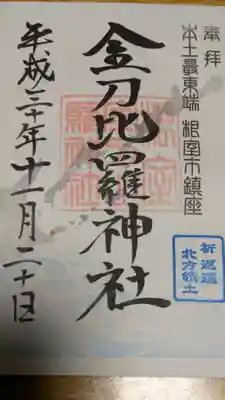 奉拝
本土最東端 根室市鎮座
金刀比羅神社
平成三十年十一月二十日
祈 返還
北方領土